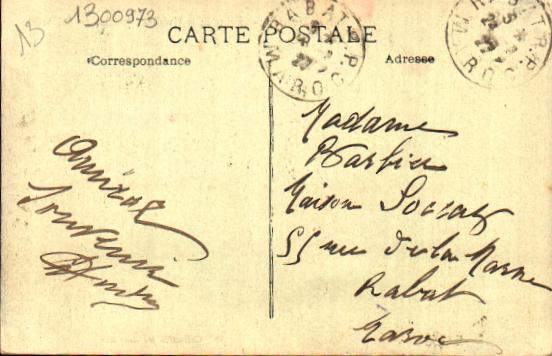 13
1300973
CARTE POSTALE
Correspondance
Adresse
RABAT R.P.
MAROC
RABAT R.P.
MAROC
Amical
Souvenir
Madame
Barbier
Maison
55 rue de la Marne
Rabat
Maroc